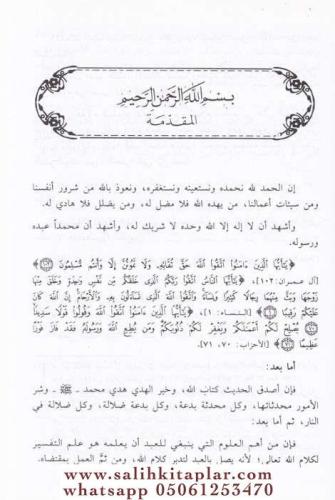 بسم الله الرحمن الرحيم
المقدمة
إن الحمد لله نحمده ونستعينه ونستغفره، ونعوذ بالله من شرور أنفسنا
ومن سيئات أعمالنا، من يهده الله فلا مضل له، ومن يضلل فلا هادي له.
وأشهد أن لا إله إلا الله وحده لا شريك له، وأشهد أن محمداً عبده
ورسوله.
﴿يَٰٓأَيُّهَا ٱلَّذِينَ ءَامَنُوا۟ ٱتَّقُوا۟ ٱللَّهَ حَقَّ تُقَاتِهِۦ وَلَا تَمُوتُنَّ إِلَّا وَأَنتُم مُّسْلِمُونَ﴾
[آل عمران: ١٠٢]، ﴿يَٰٓأَيُّهَا ٱلنَّاسُ ٱتَّقُوا۟ رَبَّكُمُ ٱلَّذِى خَلَقَكُم مِّن نَّفْسٍ وَٰحِدَةٍ وَخَلَقَ مِنْهَا
زَوْجَهَا وَبَثَّ مِنْهُمَا رِجَالًا كَثِيرًا وَنِسَآءً وَٱتَّقُوا۟ ٱللَّهَ ٱلَّذِى تَسَآءَلُونَ بِهِۦ وَٱلْأَرْحَامَ إِنَّ ٱللَّهَ كَانَ
عَلَيْكُمْ رَقِيبًا﴾ [النساء: ١]، ﴿يَٰٓأَيُّهَا ٱلَّذِينَ ءَامَنُوا۟ ٱتَّقُوا۟ ٱللَّهَ وَقُولُوا۟ قَوْلًا سَدِيدًا
يُصْلِحْ لَكُمْ أَعْمَٰلَكُمْ وَيَغْفِرْ لَكُمْ ذُنُوبَكُمْ وَمَن يُطِعِ ٱللَّهَ وَرَسُولَهُۥ فَقَدْ فَازَ فَوْزًا
عَظِيمًا﴾ [الأحزاب: ٧٠، ٧١].
أما بعد:
فإن أصدق الحديث كتاب الله، وخير الهدي هدي محمد - ﷺ - وشر
الأمور محدثاتها، وكل محدثة بدعة، وكل بدعة ضلالة، وكل ضلالة في
النار، ثم أما بعد:
فإن من أهم العلوم التي ينبغي للعبد أن يعلمه هو علم التفسير
لكلام الله تعالى؛ لأنه يصل بالعبد لتدبر كلام الله، ومن ثمَّ العمل بمقتضاه.
www.salihkitaplar.com
whatsapp 05061253470